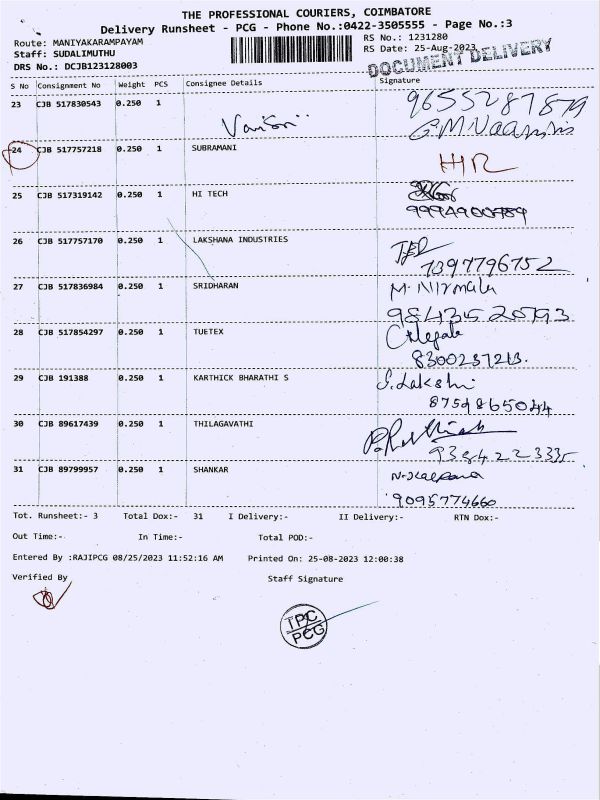 THE PROFESSIONAL COURIERS, COIMBATORE
Delivery Runsheet - PCG - Phone No.:0422-3505555 - Page No.:3
Route: MANIYAKARAMPAYAM
RS No.: 1231280
Staff: SUDALIMUTHU
RS Date: 25-Aug-2023
DRS No.: DCJB123128003
DOCUMENT DELIVERY
S No Consignment No Weight PCS Consignee Details Signature
23 CJB 517830543 0.250 1
24 CJB 517757218 0.250 1 SUBRAMANI
25 CJB 517319142 0.250 1 HI TECH
9994900789
26 CJB 517757170 0.250 1 LAKSHANA INDUSTRIES
7397796752
27 CJB 517836984 0.250 1 SRIDHARAN M. Nirmala
28 CJB 517854297 0.250 1 TUETEX
29 CJB 191388 0.250 1 KARTHICK BHARATHI S S. Lakshi
30 CJB 89617439 0.250 1 THILAGAVATHI
31 CJB 89799957 0.250 1 SHANKAR N. Kalpana
9095774660
Tot. Runsheet:- 3 Total Dox:- 31 I Delivery:- II Delivery:- RTN Dox:-
Out Time:- In Time:- Total POD:-
Entered By :RAJIPCG 08/25/2023 11:52:16 AM Printed On: 25-08-2023 12:00:38
Verified By Staff Signature
TPC
PCG